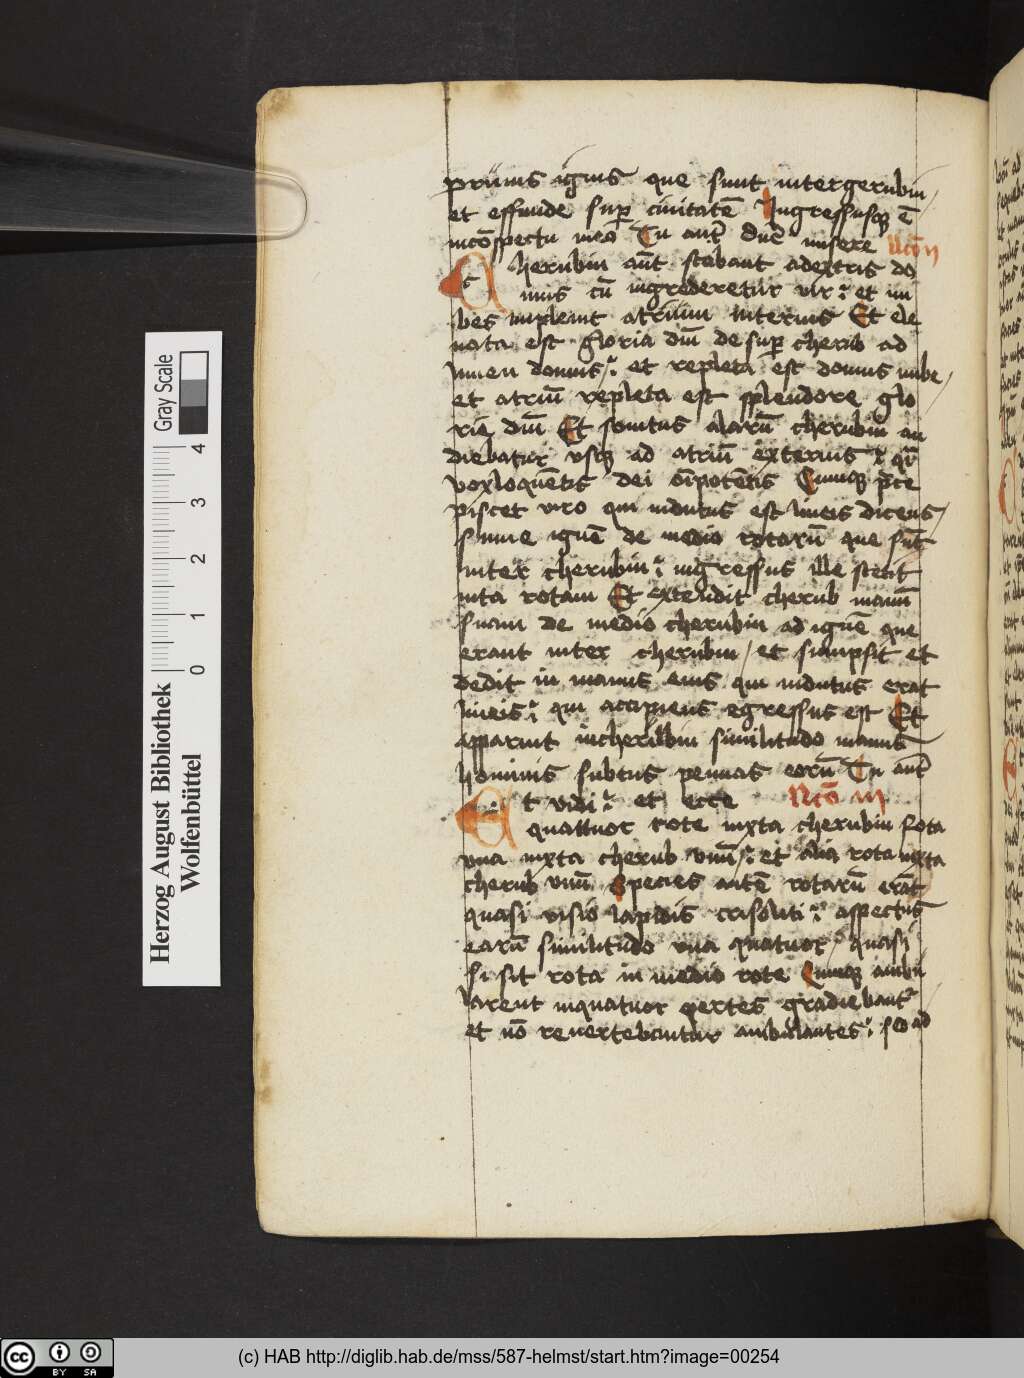 prunis ignis que sunt intergerubin
et effunde sup̄ ciuitatē Ingressusq; ē
incōspectu meo Tu aut̄ dn̄e misere Ulcō II
Cherubin aūt stabant adextris do
mus cū ingrederetur vir: et nu
bes impleuit atrium interius Et ele
uata est gloria dn̄i de sup̄ cherub ad
limen domus: et repleta est domus nube
et atriū repleta est splendore glo
rie dn̄i Et sonitus alarū cherubin au
diebatur vsq; ad atriū exterius: q̄r
voxloquētis dei oīpotētis Cumq; p̄ce
piscet viro qui indutus est lineis dicens
sume ignē de medio rotarū que sūt
inter cherubin: ingressus ille stetit
iuta rotam Et extendit cherub manū
suam de medio cherubin ad ignē que
erant inter cherubin et sumpsit et
dedit in manus eius qui indutus erat
lineis: qui accipiens egressus est Et
apparuit incherubin similitudo manus
hominis subtus pennas eorū Tu aūt
Et vidi: et ecce Ulcō III
quattuor rote iuxta cherubin Rota
vna iuxta cherub vnū: et alia rota iuxta
cherub vnū Species autē rotarū erāt
quasi visio lapidis crisoliti: aspectus
earū similitudo vna quatuor quasi
si sit rota in medio rote Cumq; ambu
larent inquatuor partes gradiebant̄
et nō reuertebantur ambulantes: s; ad
Gray Scale
4
3
2
1
0
Herzog August Bibliothek
Wolfenbüttel
cc BY SA
(c) HAB http://diglib.hab.de/mss/587-helmst/start.htm?image=00254